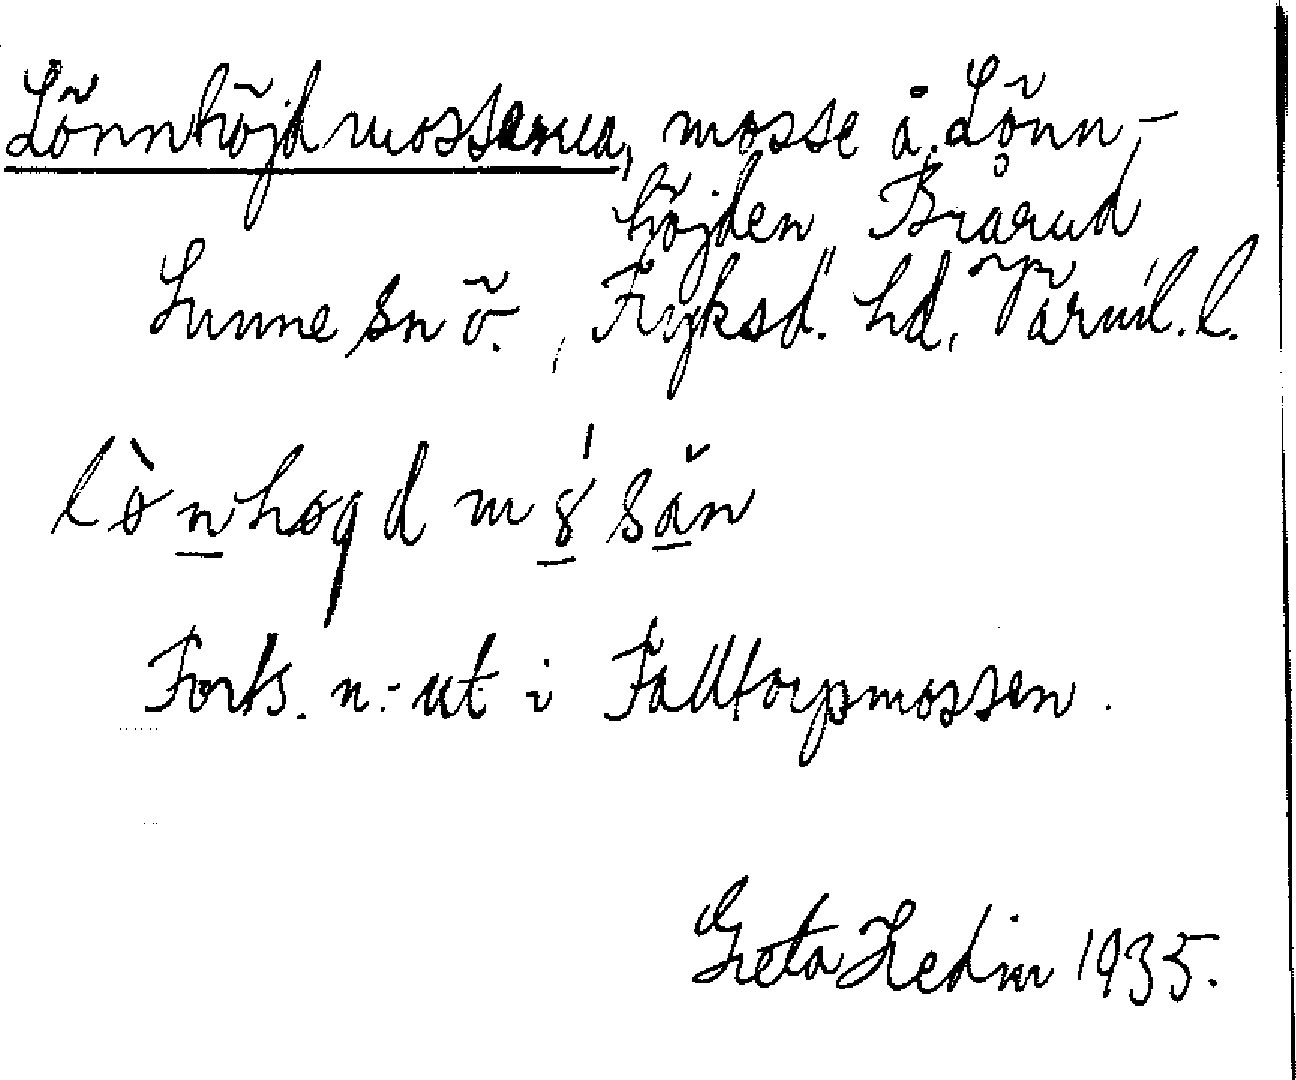 Lönnhöjdmossarna, mosse å Lönn-
höjden Brårud
Sunne sn ö., Fryksd. hd, Värml. l.
Forts. n.-ut i Falltorpmossen.
Greta Hedin 1935.